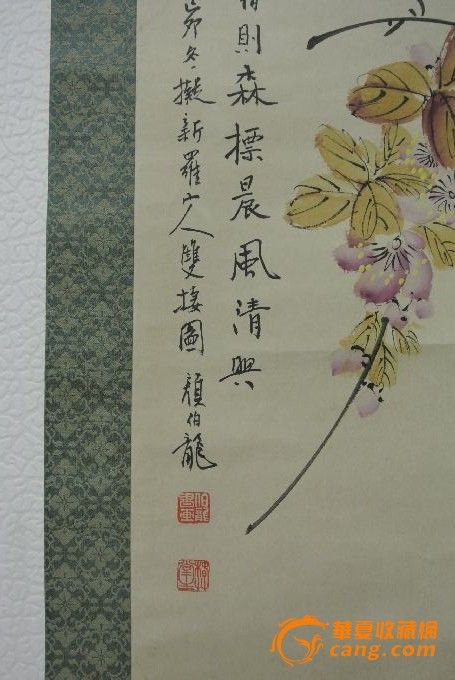 則森標晨風清興
卯冬擬新羅山人雙棲圖 顏伯龍
華夏收藏網
cang.com